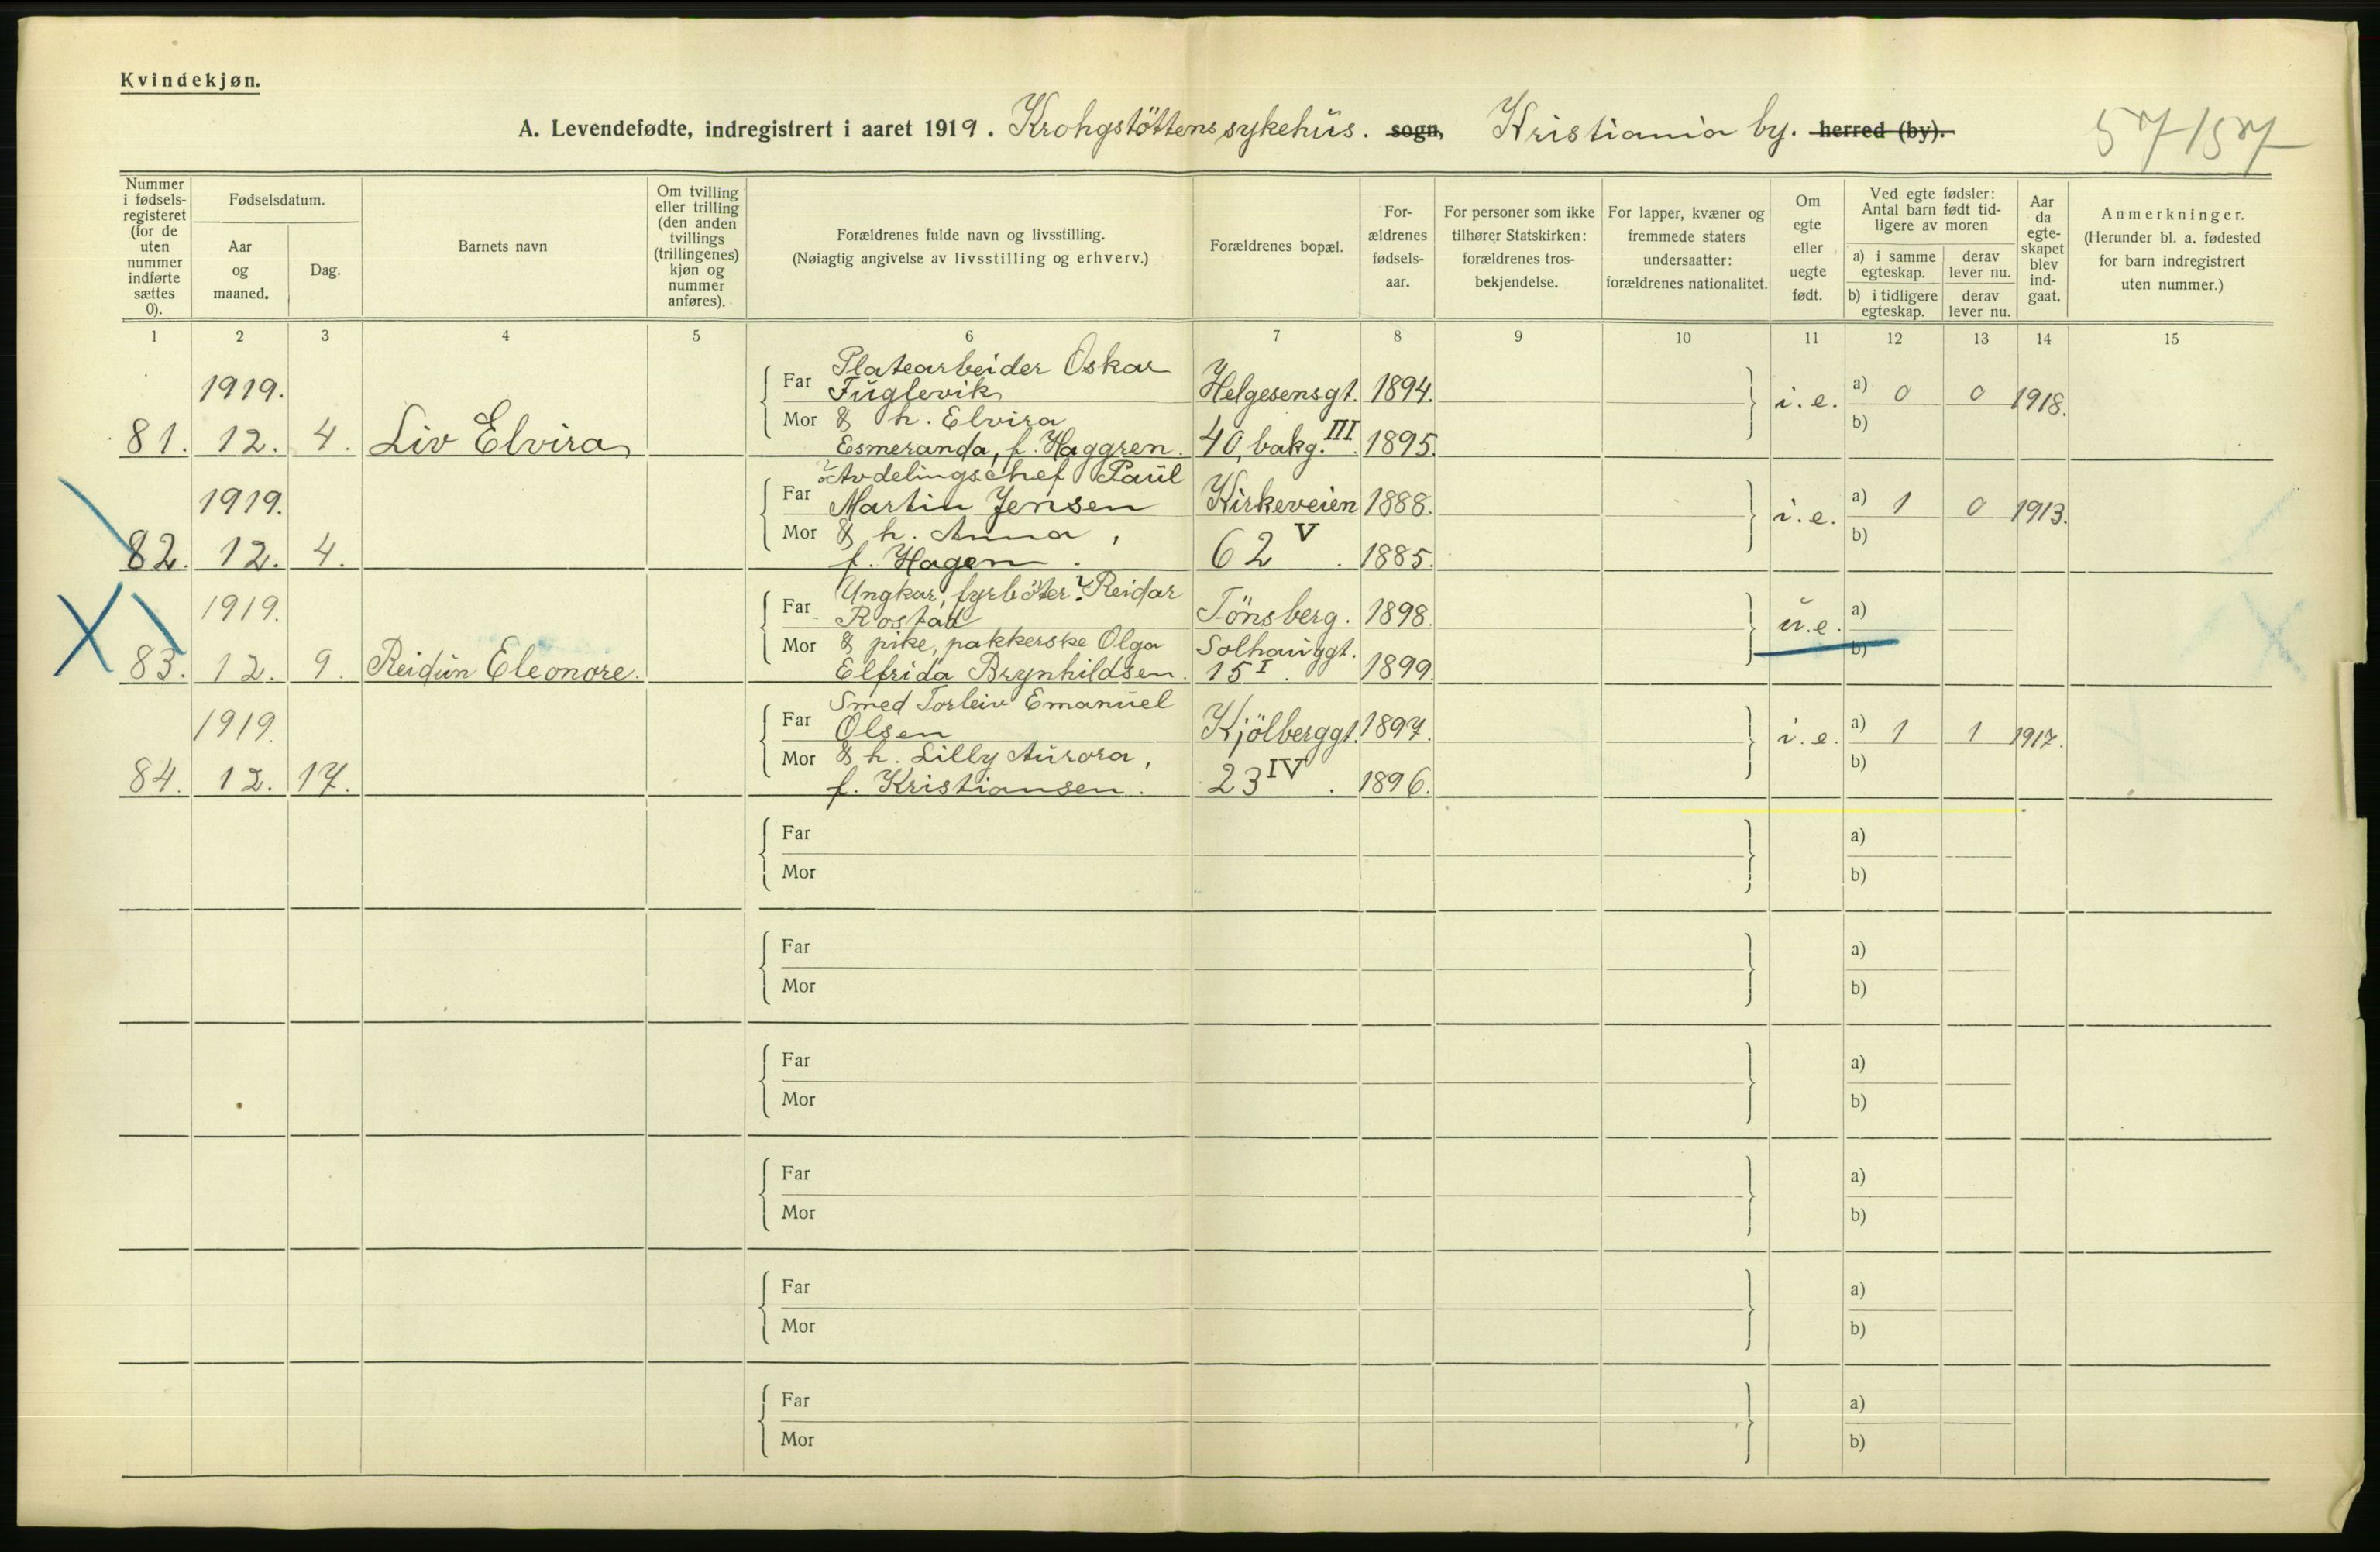 Kvindekjøn.
A. Levendefødte, indregistrert i aaret 1919. Krohgstöttens sykehus. sogn, Kristiania by. herred (by).
57157
Nummer i fødsels-registeret (for de uten nummer indførte sættes 0).
Fødselsdatum.
Aar og maaned.
Dag.
Barnets navn
Om tvilling eller trilling (den anden tvillings (trillingenes) kjøn og nummer anføres).
Forældrenes fulde navn og livsstilling.
(Nøiagtig angivelse av livsstilling og erhverv.)
Forældrenes bopæl.
For-ældrenes fødsels-aar.
For personer som ikke tilhører Statskirken: forældrenes tros-bekjendelse.
For lapper, kvæner og fremmede staters undersaatter: forældrenes nationalitet.
Om egte eller uegte født.
Ved egte fødsler: Antal barn født tid-ligere av moren
a) i samme egteskap.
derav lever nu.
b) i tidligere egteskap.
derav lever nu.
Aar da egte-skapet blev ind-gaat.
Anmerkninger.
(Herunder bl. a. fødested for barn indregistrert uten nummer.)
1 2 3 4 5 6 7 8 9 10 11 12 13 14 15
Platearbeider Oskar
1919. Far Fuglevik Helgesensgt. 1894. i. e. a) 0 0 1918.
Mor & h. Elvira b)
81. 12. 4. Liv Elvira Esmeranda, f. Haggren. 40, bakg. III. 1895.
Avdelingschef Paul
1919. Far Martin Jensen Kirkeveien 1888. i. e. a) 1 0 1913.
Mor & h. Anna, b)
82. 12. 4. f. Hagen. 62 V. 1885.
Ungkar, fyrböter? Reidar
1919. Far Rostad Tönsberg. 1898. u. e. a)
Mor & pike, pakkerske Olga Solhauggt. b)
83. 12. 9. Reidun Eleonore. Elfrida Brynhildsen. 15 I. 1899.
Smed Torleiv Emanuel
1919. Far Olsen Kjölberggt. 1897. i. e. a) 1 1 1917.
Mor & h. Lilly Aurora, b)
84. 12. 17. f. Kristiansen. 23 IV. 1896.
Far a)
Mor b)
Far a)
Mor b)
Far a)
Mor b)
Far a)
Mor b)
Far a)
Mor b)
Far a)
Mor b)